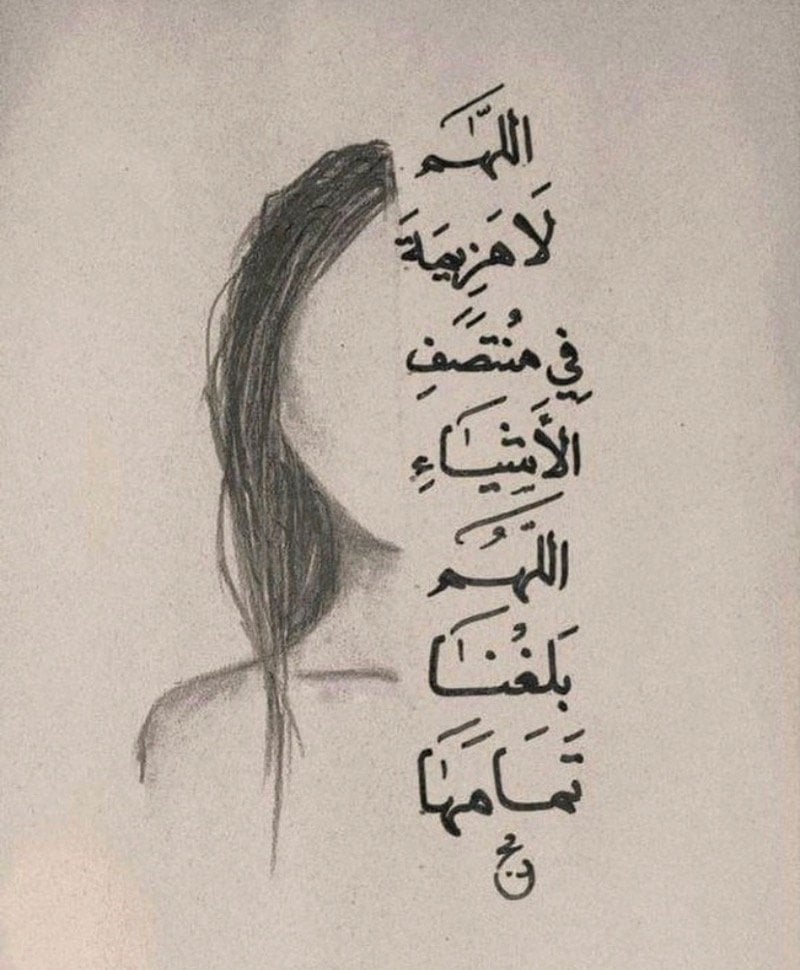 اللهَّم
لَا هَزِيمَةَ
فِي مُنتَصَفِ
الأَشيَاءِ
اللهُّم
بَلغْنَا
تَمَامَهَا